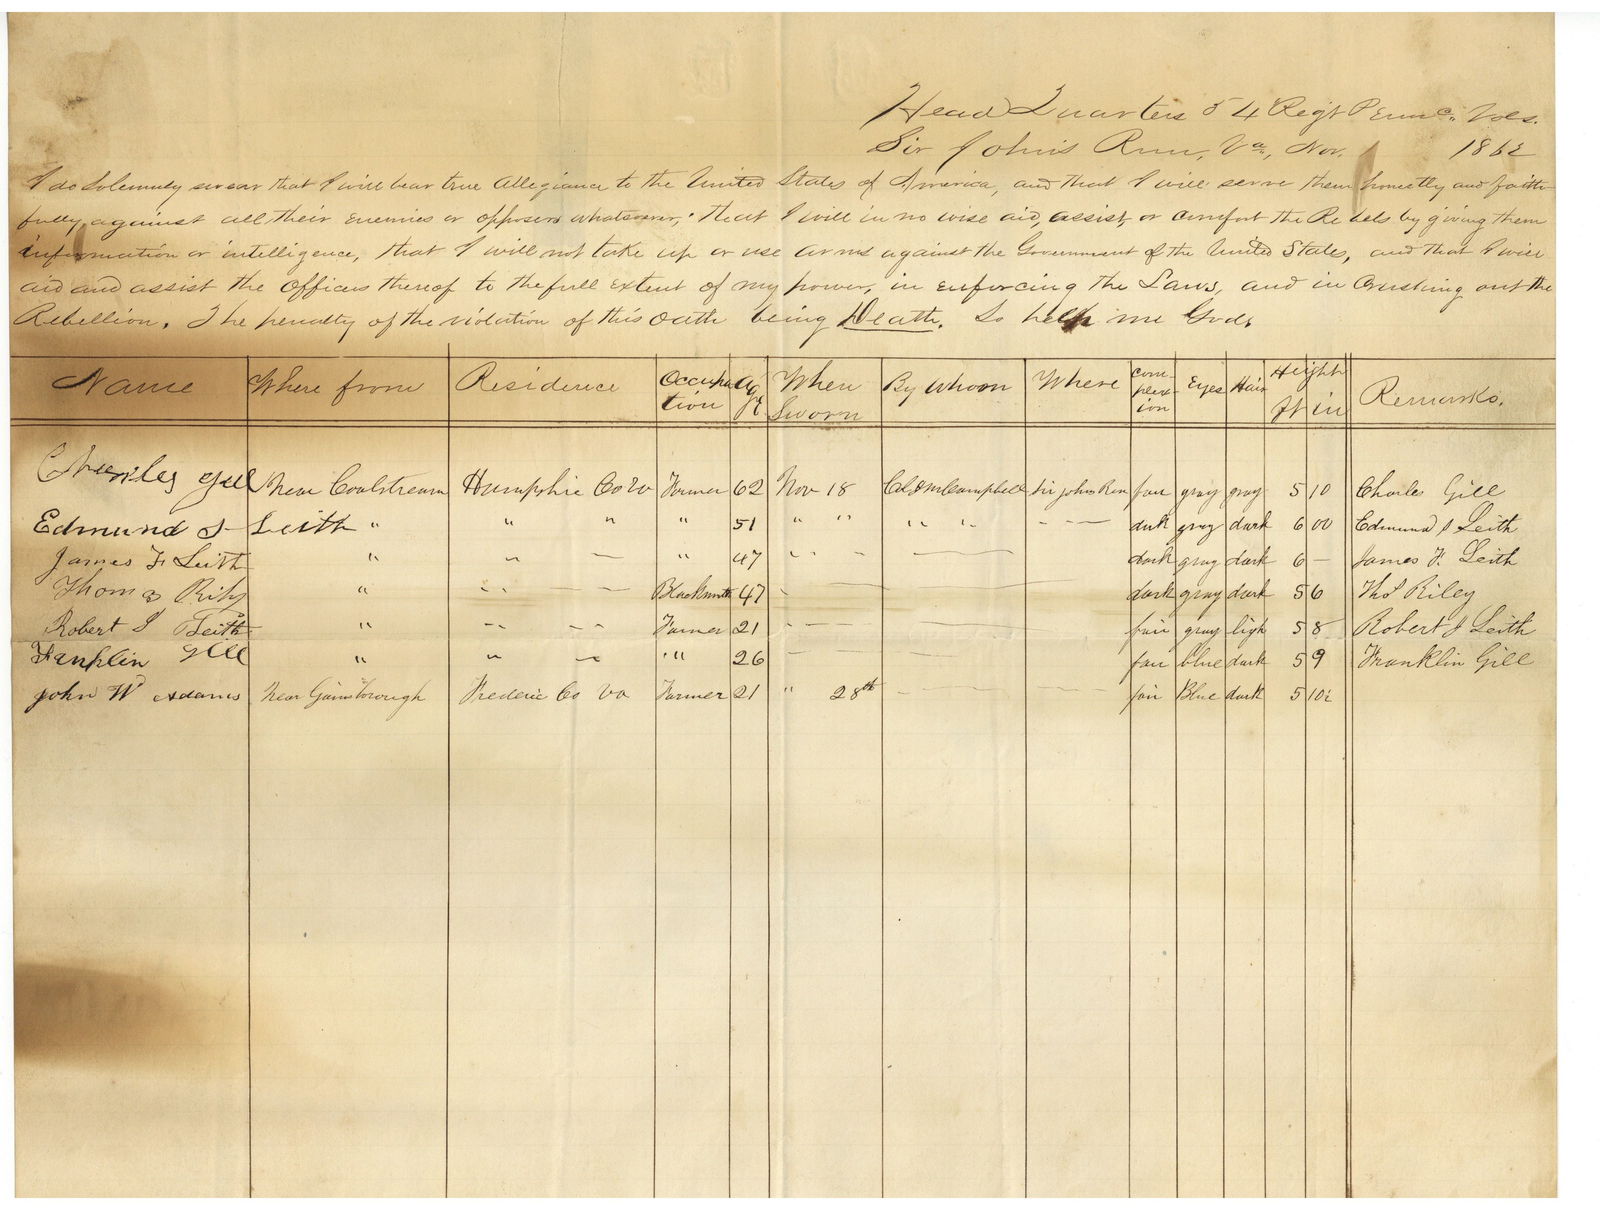 Head Quarters 54 Regt Penna. Vols.
Sir Johns Run, Va., Nov. 1862
I do Solemnly swear that I will bear true Allegiance to the United States of America, and that I will serve them honestly and faith-
fully, against all their Enemies or opposers whatsoever; that I will in no wise aid, assist, or comfort the Rebels by giving them
information or intelligence, that I will not take up or use arms against the Government of the United States, and that I will
aid and assist the Officers thereof to the full Extent of my power, in enforcing the Laws, and in Crushing out the
Rebellion. The penalty of the violation of this Oath being Death. So help me God.
Name Where from Residence Occupation Age When Sworn By whom Where Complexion Eyes Hair Height Ft in Remarks.
Charles Gill Near Coalstream Hampshire Co Va Farmer 62 Nov 18 Col J M Campbell Sir Johns Run fair gray gray 5 10 Charles Gill
Edmund S Leith " " " " 51 " " " " - - - dark gray dark 6 00 Edmund S Leith
James F Leith " " - " 47 " " " - dark gray dark 6 - James F. Leith
Thomas Rily " " " - - Blacksmith 47 " - - - dark gray dark 5 6 Thos Riley
Robert S Leith " " " " " Farmer 21 " - - - fair gray ligh 5 8 Robert S Leith
Franklin Gill " " " " 26 - - - - fair blue dark 5 9 Franklin Gill
John W Adams Near Gainsborough Frederic Co Va Farmer 21 " 28th - - - fair Blue dark 5 10½